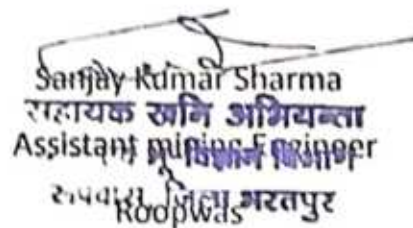 Sanjay Kumar Sharma
सहायक खनि अभियन्ता
Assistant mining Engineer
विज्ञान विभाग
रूपवास, जिला भरतपुर
Roopwas